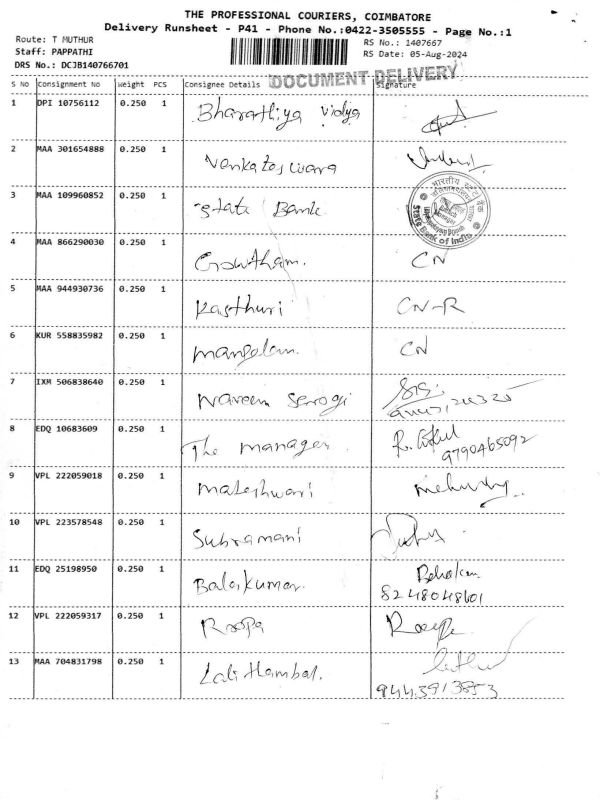 THE PROFESSIONAL COURIERS, COIMBATORE
Delivery Runsheet - P41 - Phone No.:0422-3505555 - Page No.:1
Route: T MUTHUR
RS No.: 1407667
Staff: PAPPATHI
RS Date: 05-Aug-2024
DRS No.: DCJB140766701
DOCUMENT DELIVERY
S No Consignment No Weight PCS Consignee Details Signature
1 DPI 10756112 0.250 1 Bharathiya Vidya
2 MAA 301654888 0.250 1 Venkateswara
3 MAA 109960852 0.250 1 State Bank
भारतीय स्टेट बैंक
State Bank of India
4 MAA 866290030 0.250 1 Gowtham. CN
5 MAA 944930736 0.250 1 Kasthuri CN-R
6 KUR 558835982 0.250 1 mangalam. CN
7 IXM 506838640 0.250 1 Naveen
8 EDQ 10683609 0.250 1 The manager
9790465092
9 VPL 222059018 0.250 1 Mateshwari
10 VPL 223578548 0.250 1 Subramani
11 EDQ 25198950 0.250 1 Balakumar
8248048601
12 VPL 222059317 0.250 1 Roopa Roope
13 MAA 704831798 0.250 1 Lalithambal.
9443913853